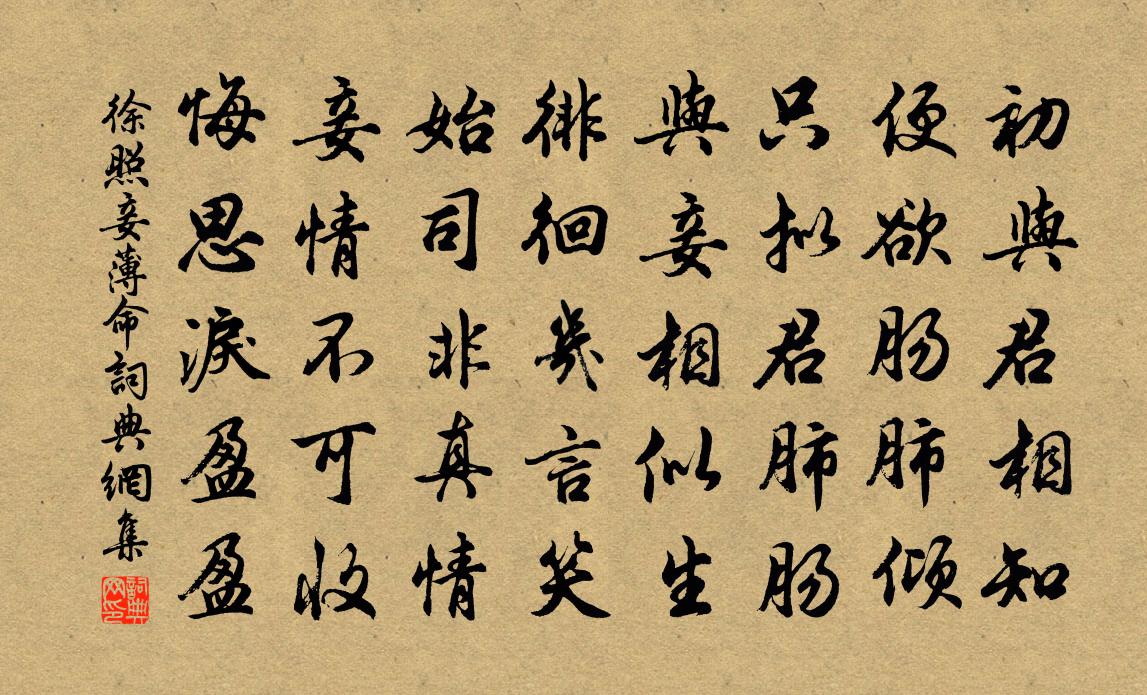 初與君相知
便欲肠肺倾
只拟君肺肠
與妾相似生
徘徊幾言笑
始司非真情
妾情不可收
悔思淚盈盈
徐照妾薄命詞典網集
詞典網印